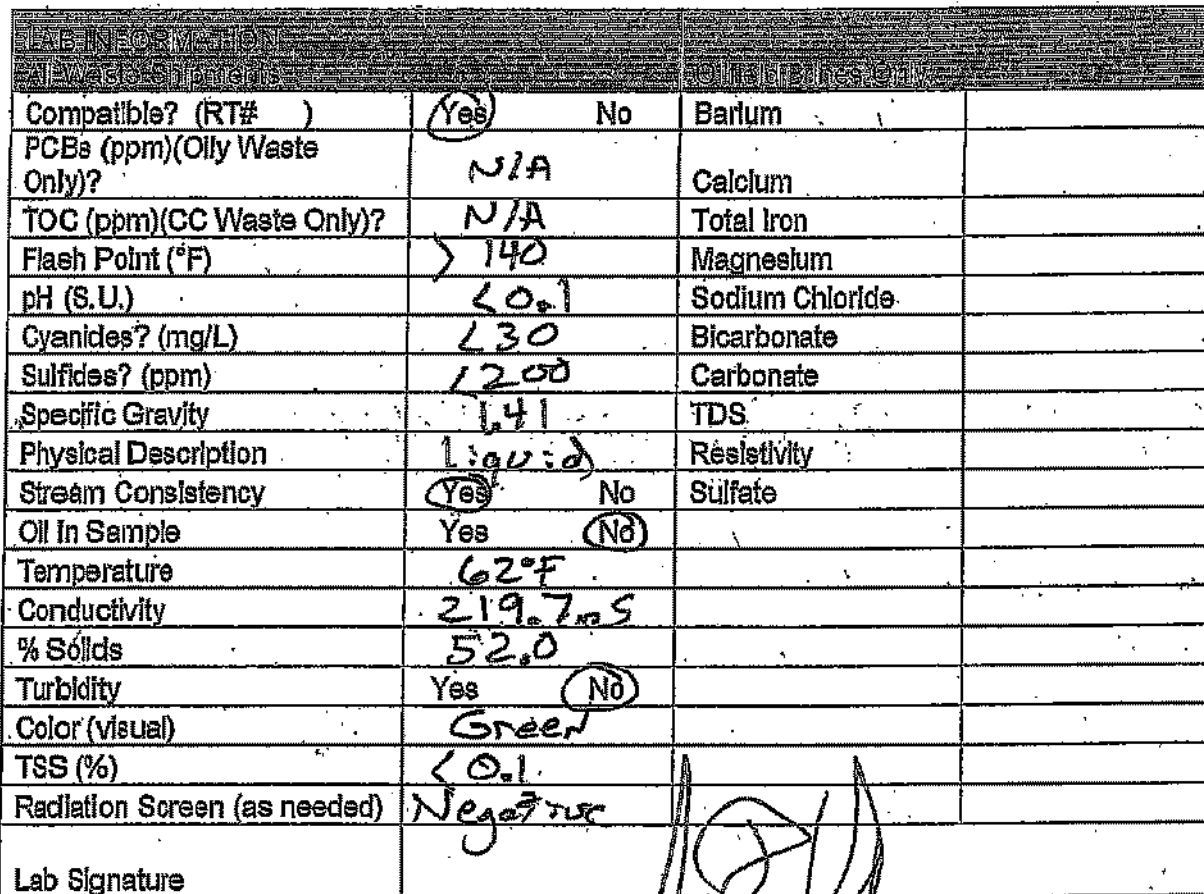 LAB INFORMATION
All Waste Shipments
Compatible? (RT# ) Yes No Barium
PCBs (ppm)(Oily Waste Only)? N/A Calcium
TOC (ppm)(CC Waste Only)? N/A Total Iron
Flash Point (°F) > 140 Magnesium
pH (S.U.) <0.1 Sodium Chloride
Cyanides? (mg/L) <30 Bicarbonate
Sulfides? (ppm) <200 Carbonate
Specific Gravity 1.41 TDS
Physical Description liquid Resistivity
Stream Consistency Yes No Sulfate
Oil In Sample Yes No
Temperature 62°F
Conductivity 219.7 mS
% Solids 52.0
Turbidity Yes No
Color (visual) Green
TSS (%) <0.1
Radiation Screen (as needed) Negative
Lab Signature